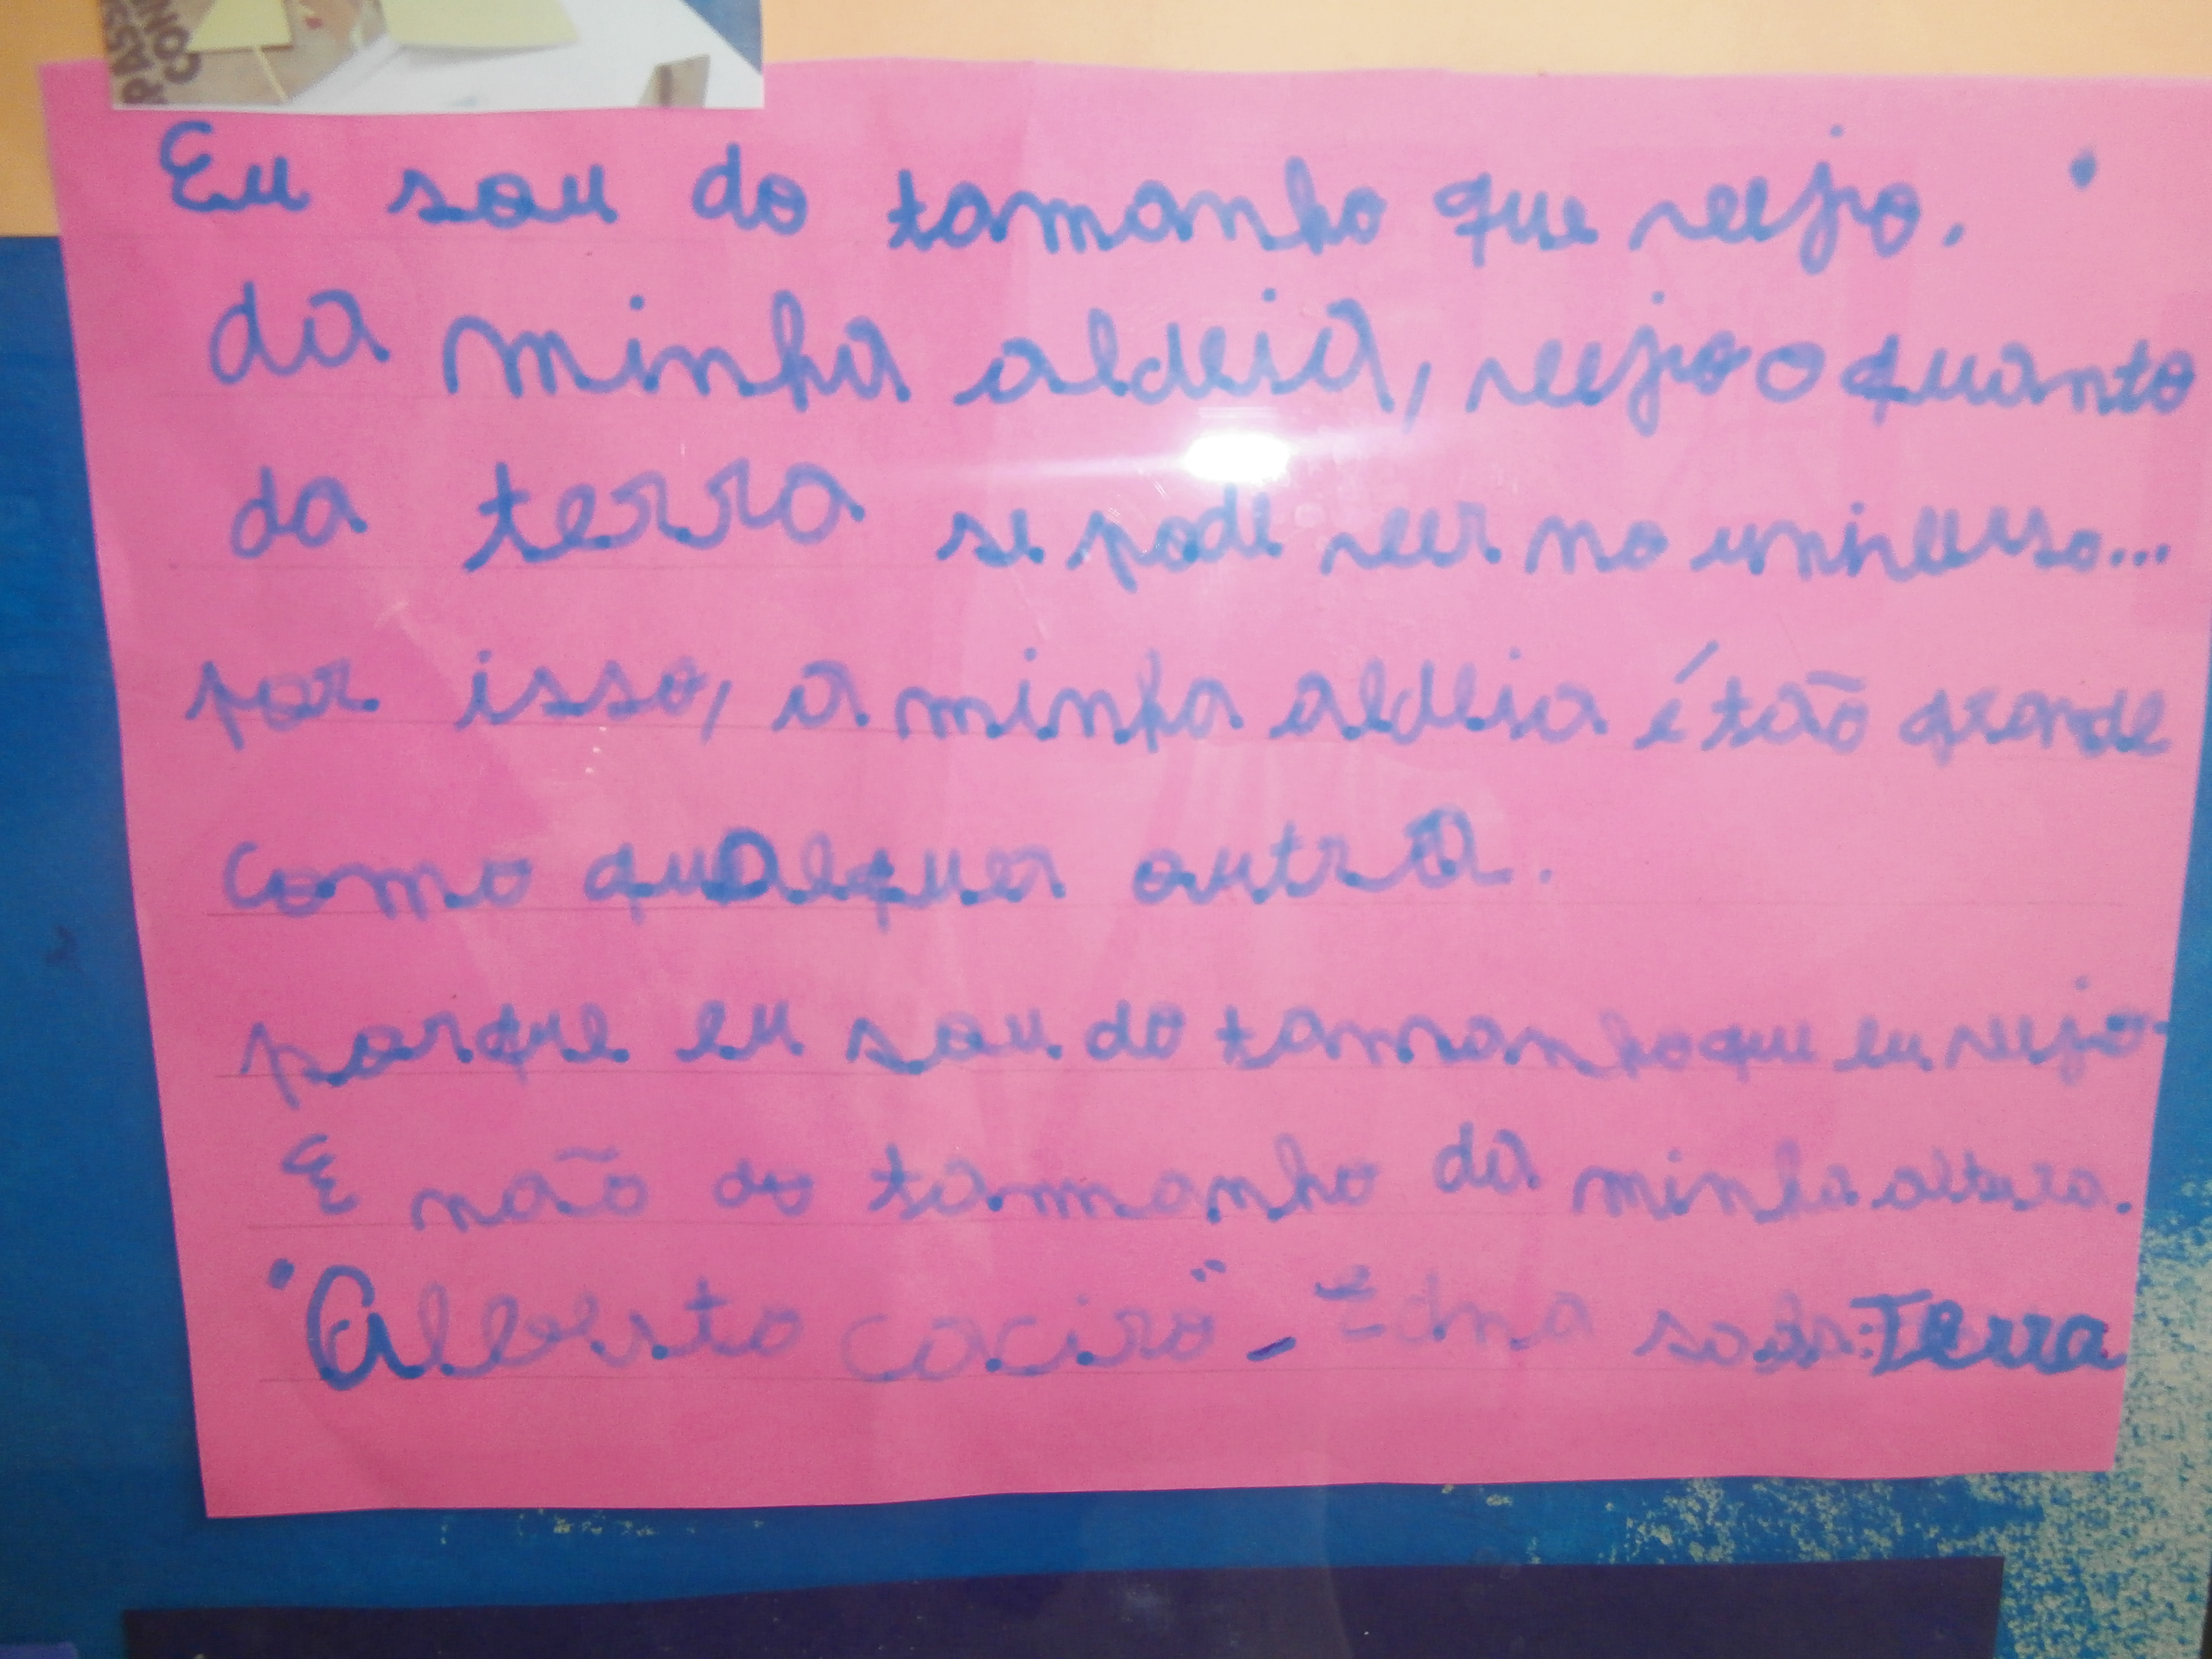 PASS
CON
Eu sou do tamanho que veejo.
da minha aldeia, veejo o quanto
da terra se pode veer no universo...
por isso, a minha aldeia é tão grande
como qualquer outra.
porque eu sou do tamanho que eu veejo.
E não do tamanho da minha altura.
"Alberto caeiro" - Edna Terra